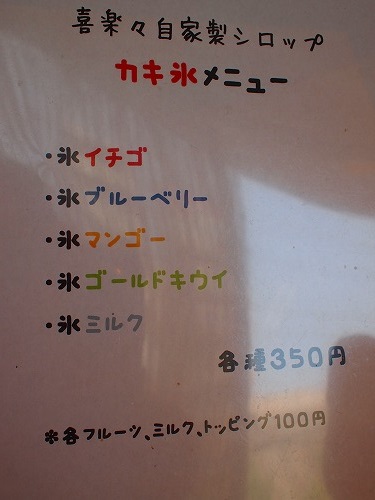 喜楽々自家製シロップ
カキ氷メニュー
・氷イチゴ
・氷ブルーベリー
・氷マンゴー
・氷ゴールドキウイ
・氷ミルク
各種350円
※各フルーツ、ミルク、トッピング100円